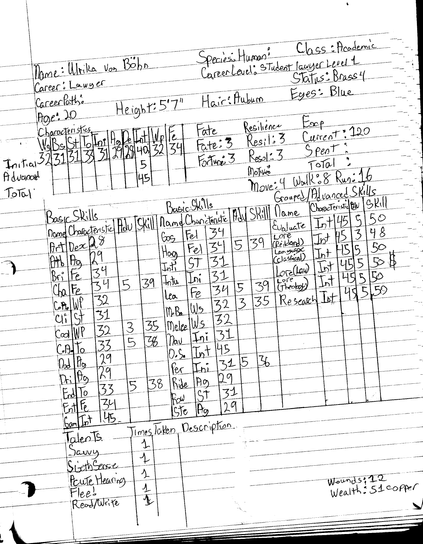 Name: Ulrika von Böhn Species: Human Class: Academic
Career: Lawyer Career Level: Student lawyer Level 1
Career Path: Status: Brass 4
Age: 20 Height: 5'7" Hair: Auburn Eyes: Blue
Characteristics Fate Resilience Exp
Ws Bs St To Int Ag Int Wp Fe Fate: 3 Resil: 3 Current: 120
Initial 32 31 31 33 31 29 32 34 Fortune: 3 Resol: 3 Spent:
Advanced 5 Motive Total:
Total 45 Move: 4 Walk: 8 Run: 16
Basic Skills Basic Skills Grouped/Advanced Skills
Name Characteristic Adv Skill Name Characteristic Adv Skill Name Characteristic Adv Skill
Art Dex 28 Gos Fel 34 Evaluate Int 45 5 50
Ath Ag 29 Hag Fel 34 5 39 Lore (Reikland) Int 45 3 48
Bri Fe 34 Inti ST 31 Language (Classical) Int 45 5 50
Cha Fe 34 5 39 Intu Ini 31 Lore (Law) Int 45 5 50
C.A. WP 32 Lea Fe 34 5 39 Lore (Theology) Int 45 5 50
Cli St 31 M.Ba Ws 32 3 35 Research Int 45 5 50
Cool WP 32 3 35 Melee Ws 32
C.A. To 33 5 38 Nav Ini 31
Dod Ag 29 O.S. Int 45
Dri Ag 29 Per Ini 31 5 36
End To 33 5 38 Ride Ag 29
Ent Fe 34 Row ST 31
Gam Int 45 Ste Ag 29
Talents Times taken Description
Savvy 1
Sixth Sense 1
Acute Hearing 1
Flee! 1
Read/Write 1
Wounds: 12
Wealth: 51 copper